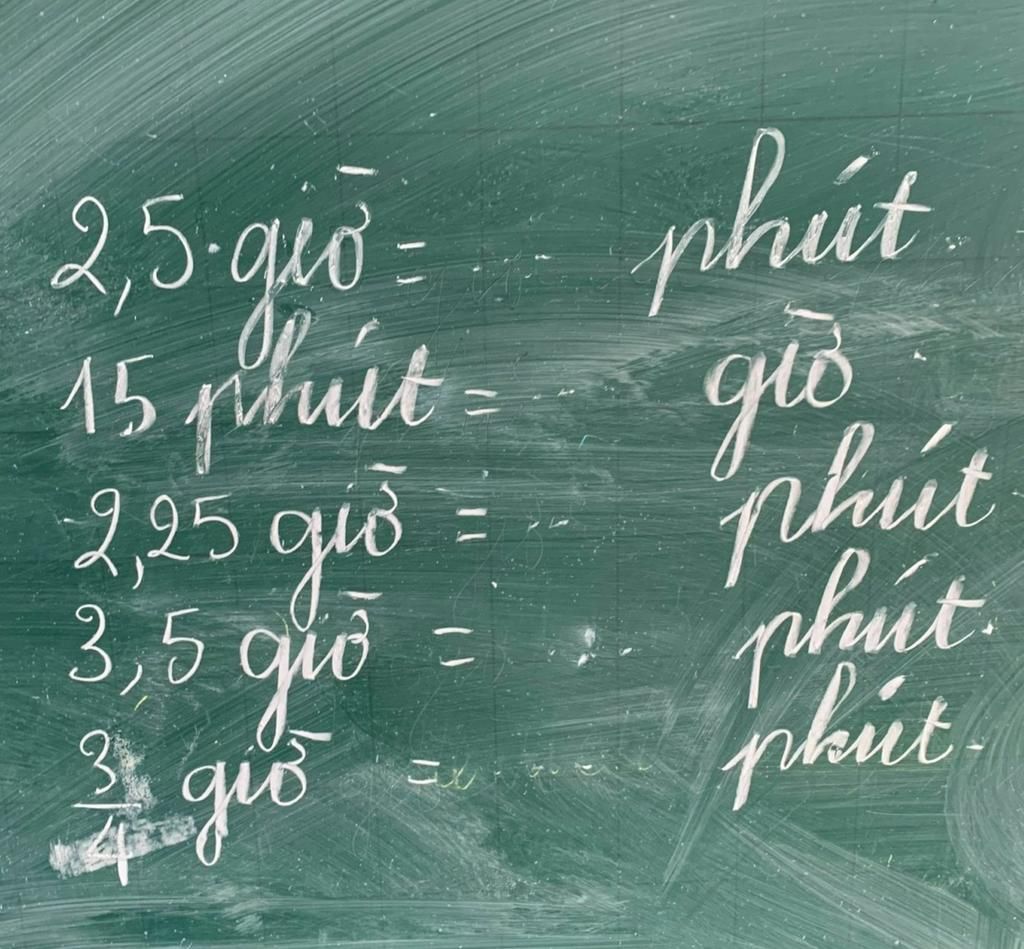 2,5 giờ = ... phút
15 phút = ... giờ
2,25 giờ = ... phút
3,5 giờ = ... phút.
3/4 giờ = ... phút.